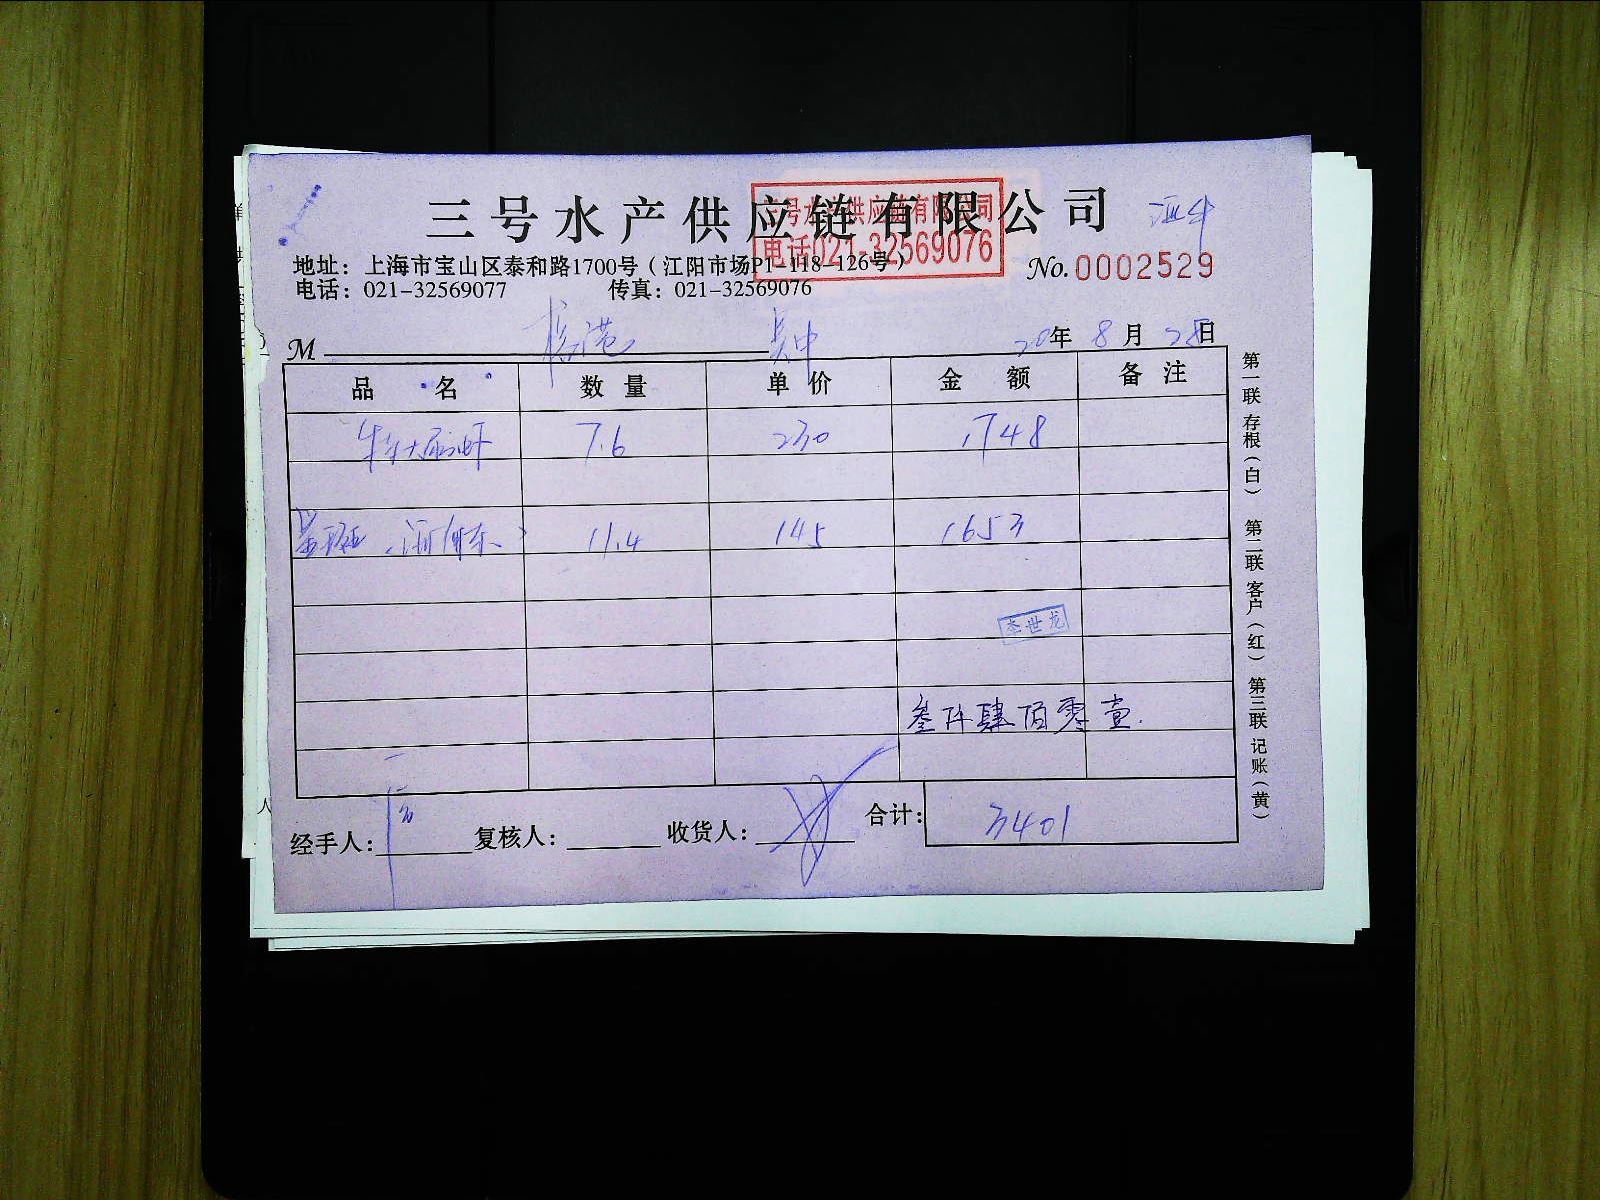 三号水产供应链有限公司
三号水产供应链有限公司
电话021-32569076
地址：上海市宝山区泰和路1700号（江阳市场P1-118-126号）
No.0002529
电话：021-32569077 传真：021-32569076
M 港 吴中 20年 8月 28日
品名 数量 单价 金额 备注
7.6 230 1748
11.4 145 1653
李世龙
叁仟肆佰零壹.
经手人： 复核人： 收货人： 合计：3401
第一联 存根（白） 第二联 客户（红） 第三联 记账（黄）
人